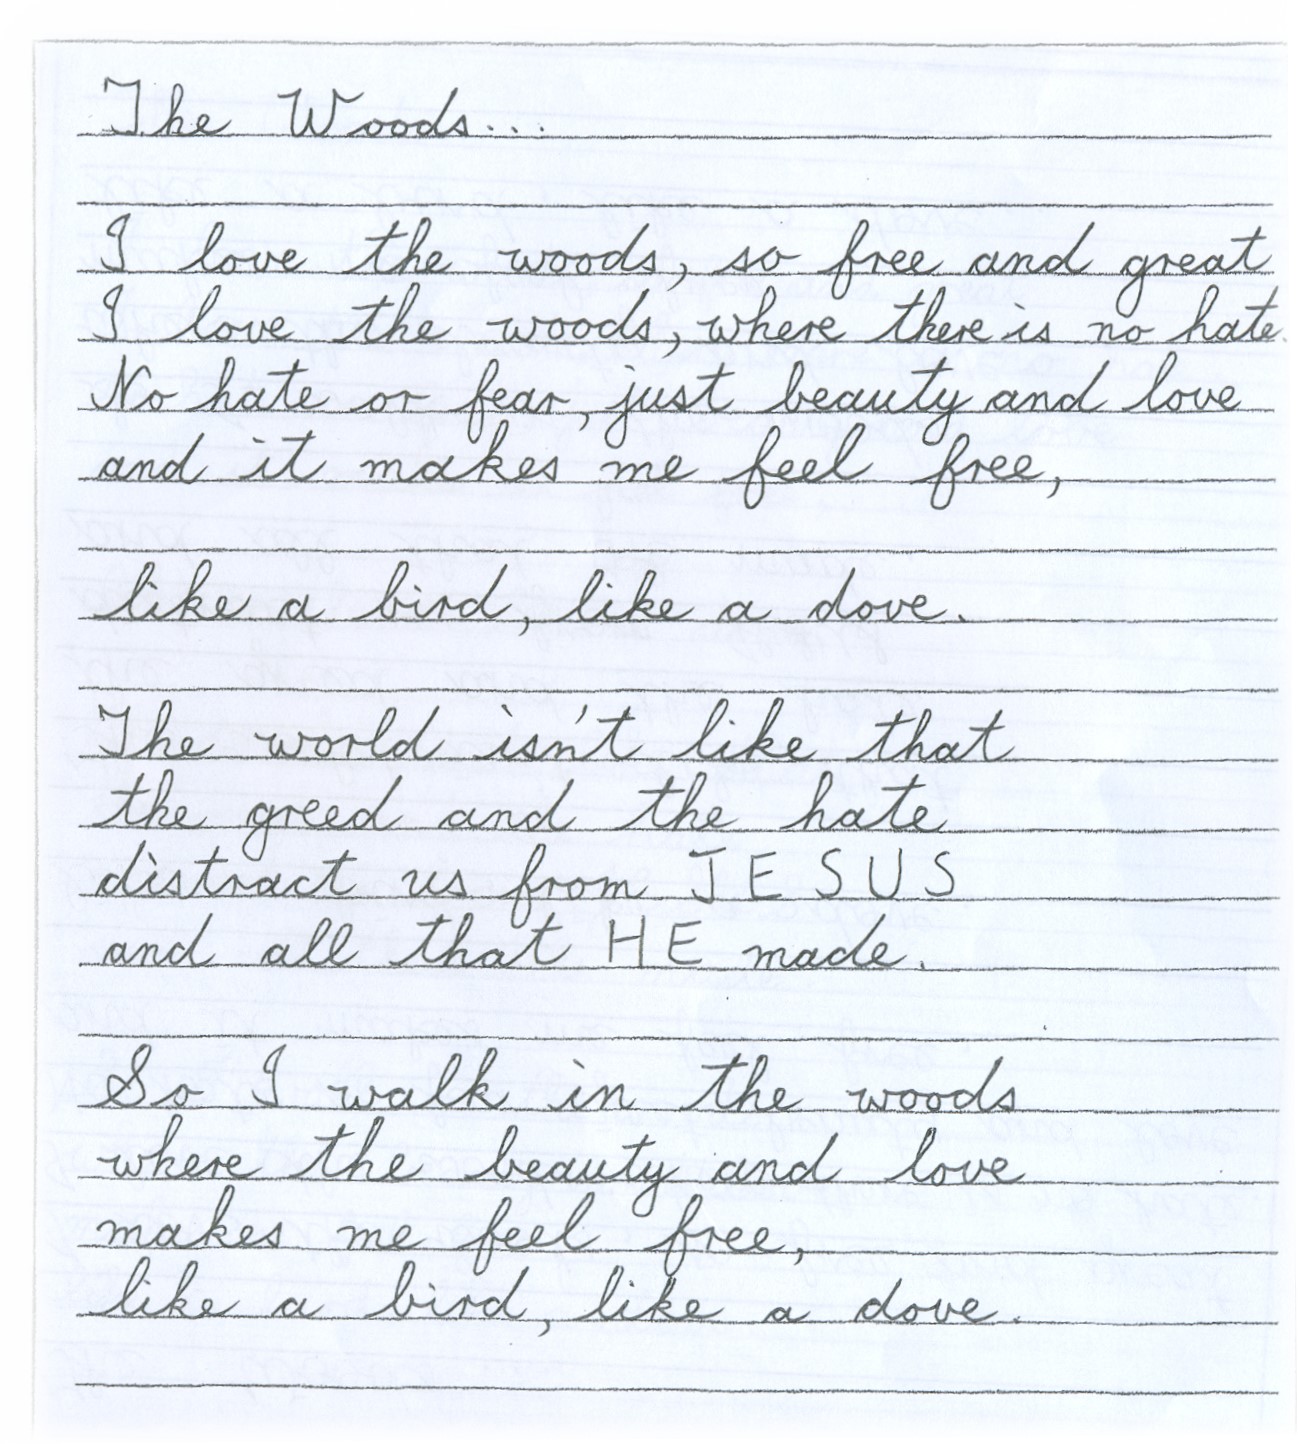 The Woods...
I love the woods, so free and great
I love the woods, where there is no hate.
No hate or fear, just beauty and love
and it makes me feel free,
like a bird, like a dove.
The world isn't like that
the greed and the hate
distract us from JESUS
and all that HE made.
So I walk in the woods
where the beauty and love
makes me feel free,
like a bird, like a dove.